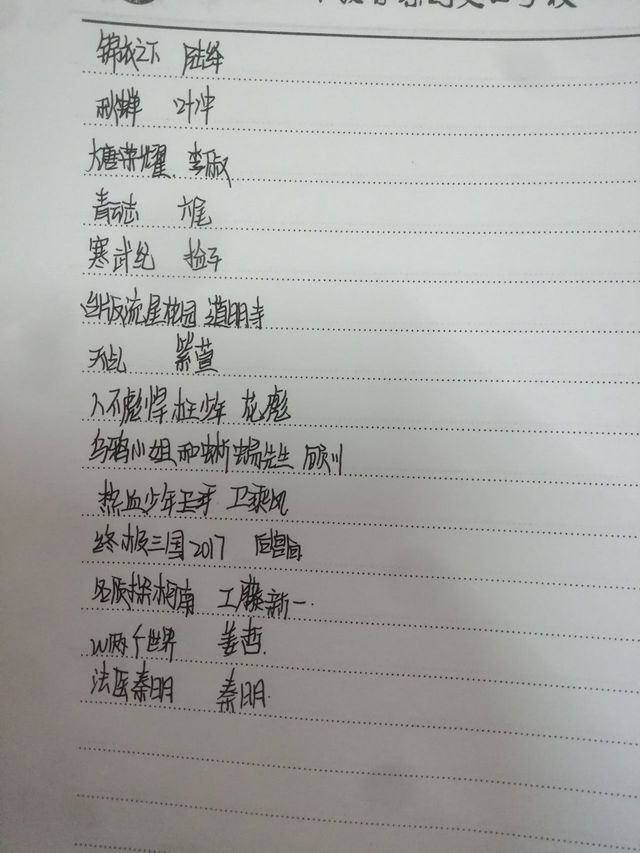 锦衣之下 陆绎
秋蝉 叶冲
大唐荣耀 李俶
青云志 六尾
寒武纪
台版流星花园 道明寺
天乩 紫萱
人不彪悍枉少年 花彪
乌鸦小姐和蜥蜴先生 顾川
热血少年 卫乘风
终极三国2017
名侦探柯南 工藤新一.
W两个世界 姜哲.
法医秦明 秦明.